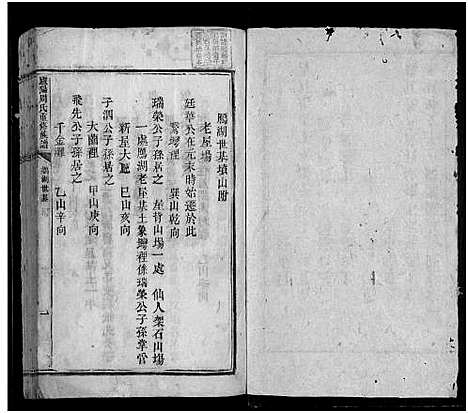 鵬湖世基墳山附
老屋塲
廷華公在元末時始遷於此
灣裡 巽山乾向
瑞榮公子孫居之 屋背山塲一處 仙人架石山塲
一處鵬湖老屋基土象灣裡係瑞榮公子孫掌管
新屋大廳 巳山亥向
子泗公子孫居之
大崙裡 甲山庚向
飛先公子孫居之
千金 乙山辛向
周氏重修族譜
湖世基
一